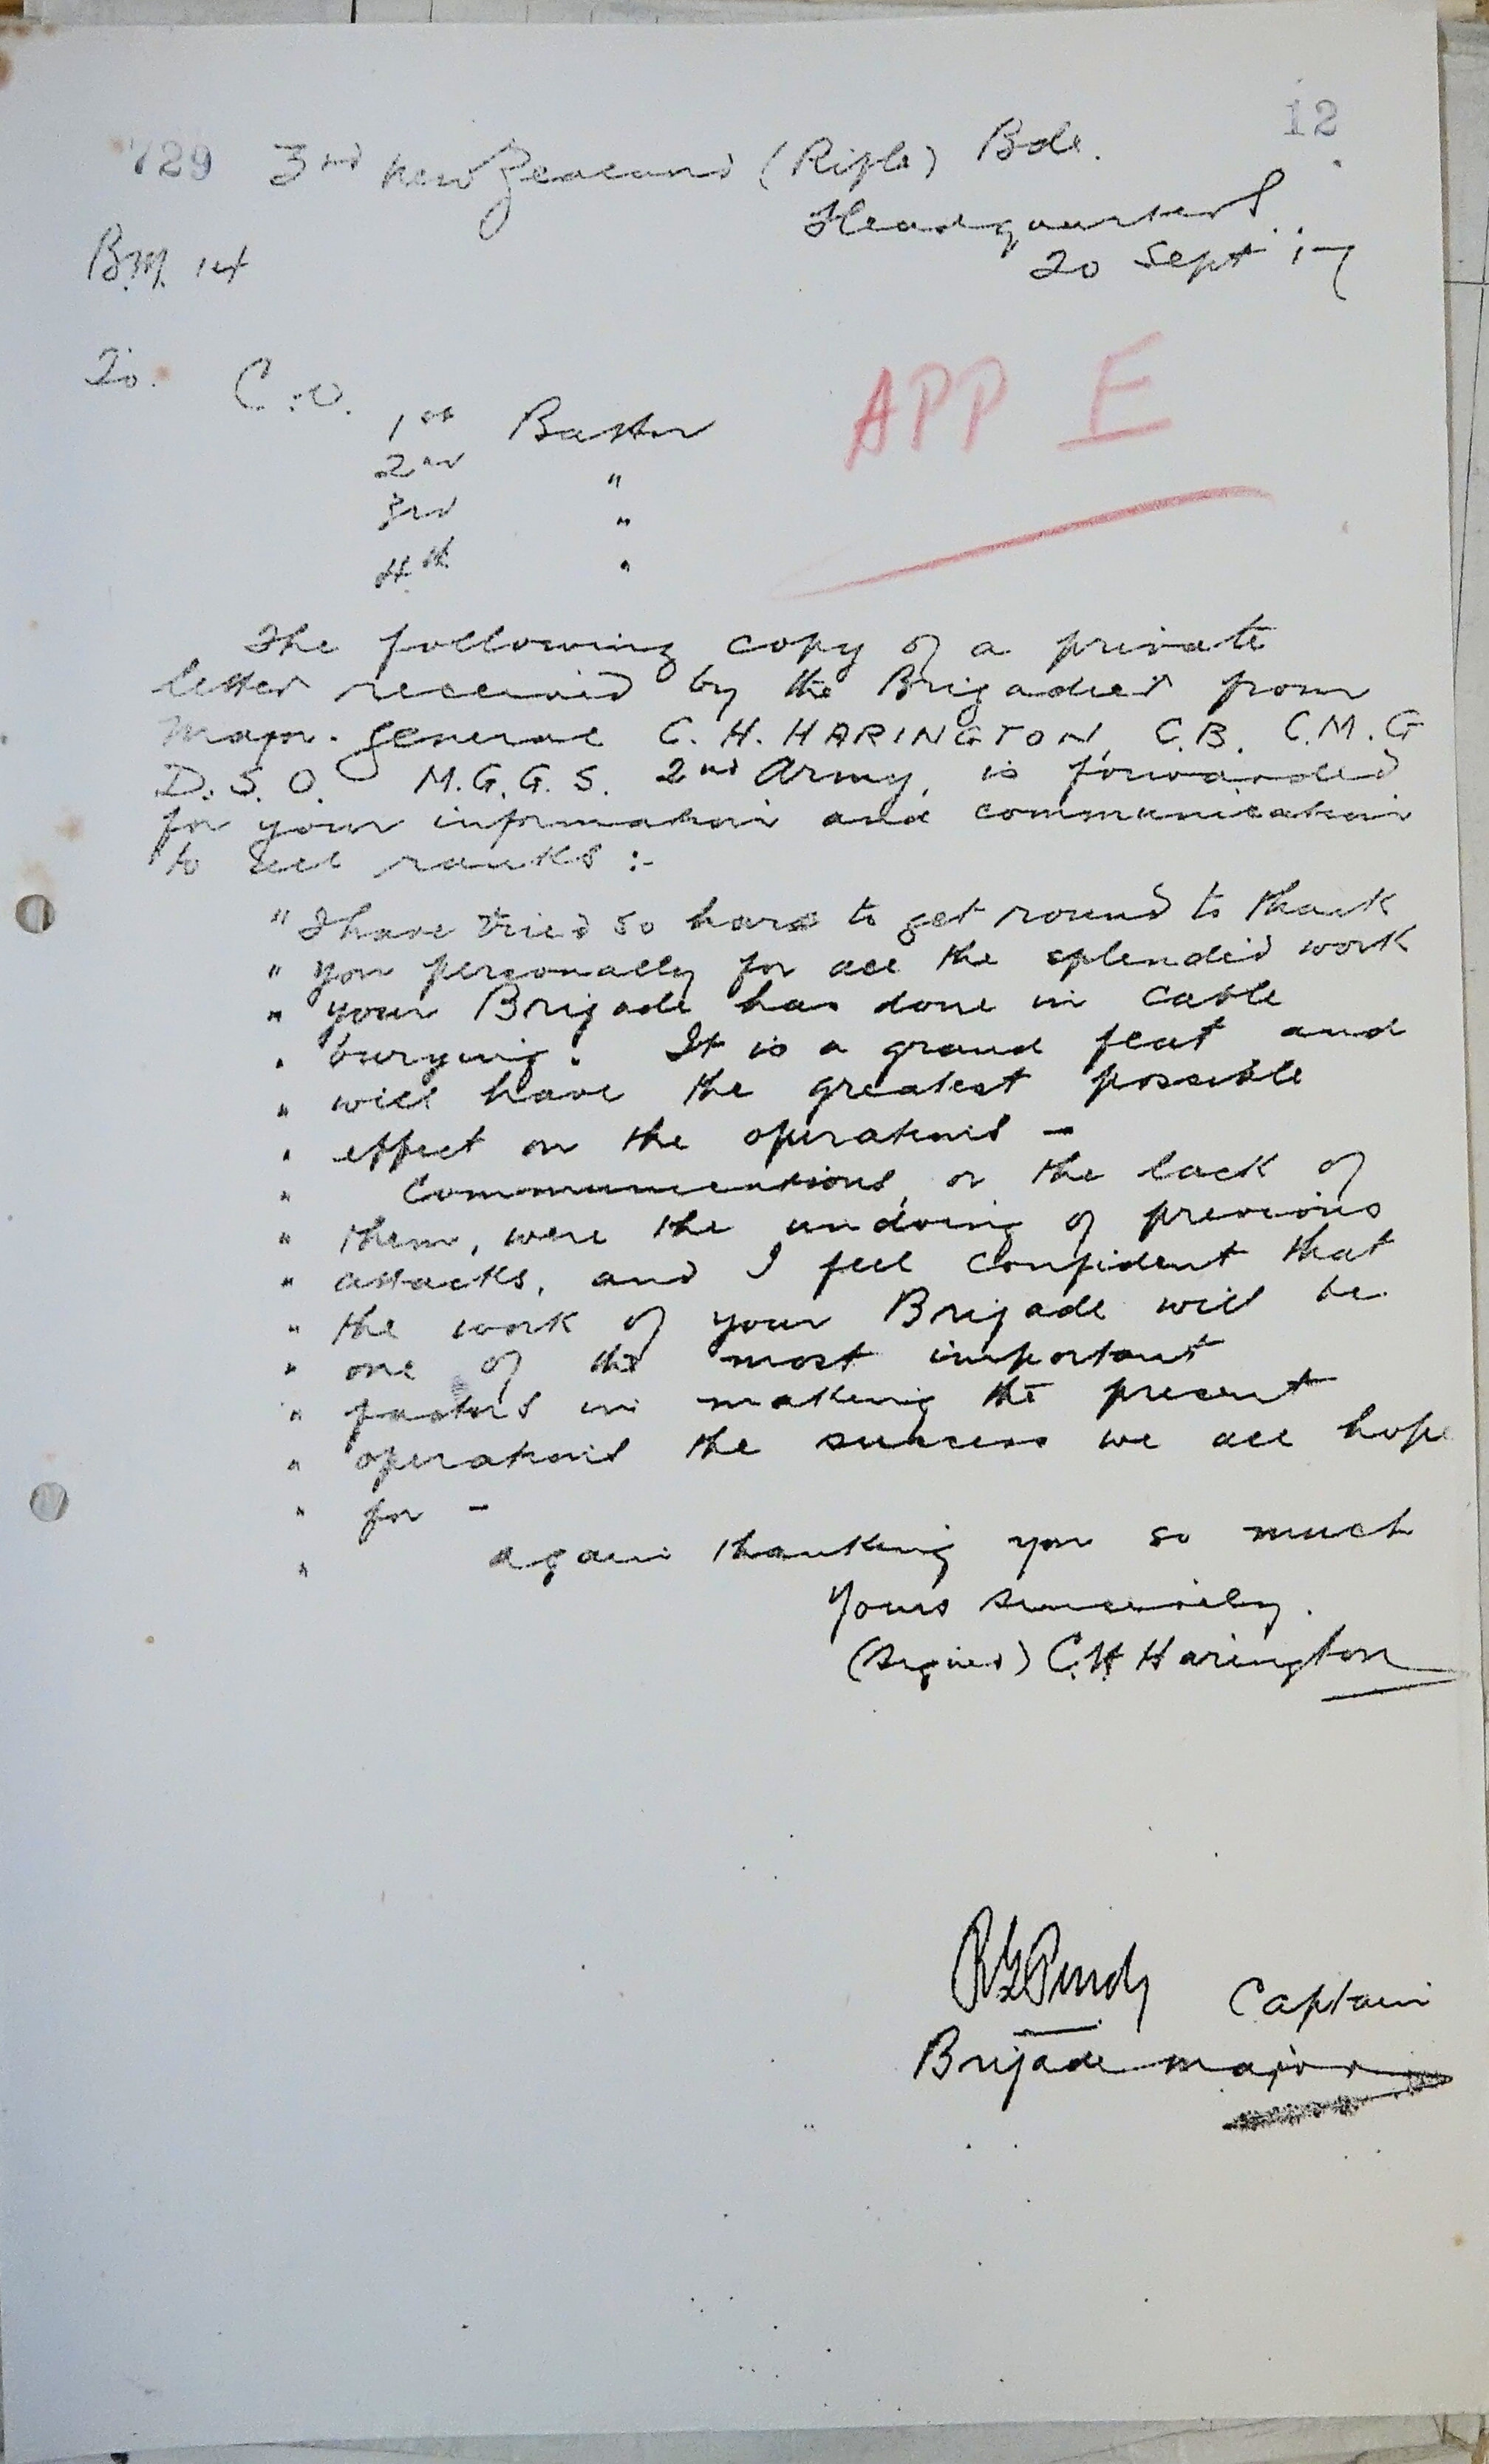 729 3rd New Zealand (Rifle) Bde. 12
Headquarters
B.M. 14
20 Sept '17
To. C.O.
1st Battn
2nd "
3rd "
4th "
APP E
The following copy of a private
letter received by the Brigadier from
Major. General C. H. HARINGTON, C.B. C.M.G
D.S.O. M.G.G.S. 2nd Army, is forwarded
for your information and communication
to all ranks :-
" I have tried so hard to get round to thank
" you personally for all the splendid work
" your Brigade has done in cable
" burying. It is a grand feat and
" will have the greatest possible
" effect on the operations -
" Communications, or the lack of
" them, were the undoing of previous
" attacks, and I feel confident that
" the work of your Brigade will be
" one of the most important
" factors in making the present
" operations the success we all hope
" for -
" Again thanking you so much
Yours sincerely.
(Signed) C.H Harington
Captain
Brigade Major